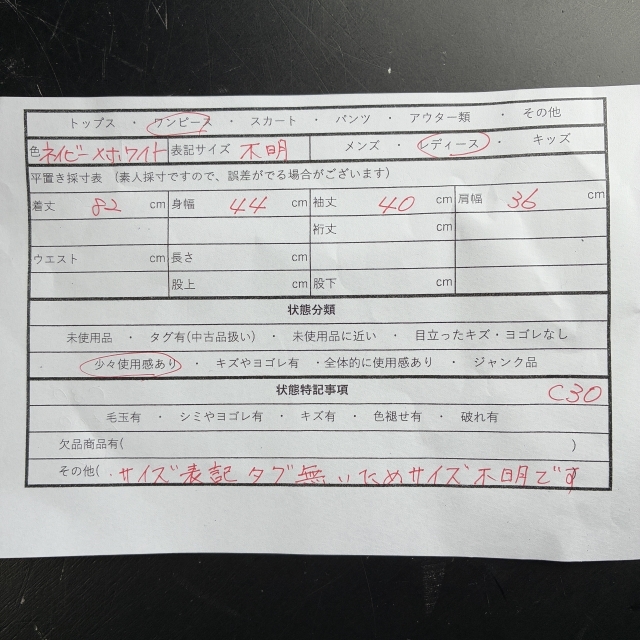 トップス ・ ワンピース ・ スカート ・ パンツ ・ アウター類 ・ その他
色 ネイビー×ホワイト 表記サイズ 不明 メンズ ・ レディース ・ キッズ
平置き採寸表 (素人採寸ですので、誤差がでる場合がございます)
着丈 82 cm 身幅 44 cm 袖丈 40 cm 肩幅 36 cm
裄丈 cm
ウエスト cm 長さ cm
股上 cm 股下 cm
状態分類
未使用品 ・ タグ有(中古品扱い) ・ 未使用品に近い ・ 目立ったキズ・ヨゴレなし
少々使用感あり ・ キズやヨゴレ有 ・全体的に使用感あり ・ ジャンク品
状態特記事項 C30
毛玉有 ・ シミやヨゴレ有 ・ キズ有 ・ 色褪せ有 ・ 破れ有
欠品商品有( )
その他( . サイズ表記タブ無いためサイズ不明です